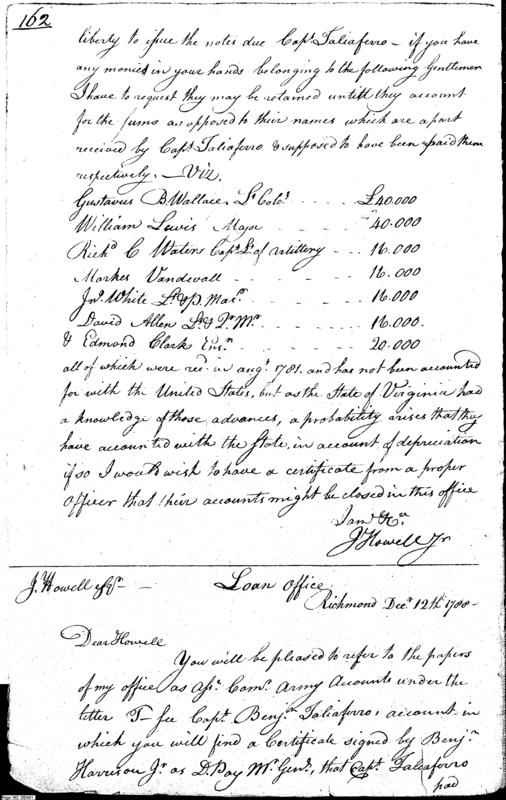 162
liberty to issue the notes due Capt. Taliaferro – if you have
any monies in your hands belonging to the following Gentlemen
I have to request they may be retained untill they account
for the sums as opposed to their names which are a part
received by Capt Taliaferro & supposed to have been paid them
respectively. — Viz.
Gustavus B Wallace Lt Colo. . . . . £40.000
William Lewis Major . . . . . 40.000
Richd C Waters Capt Lt of Artillery . . . . 16.000
Markes Vandewall . . . . 16.000
Jno. White Lt & P. Masr. . . . . 16.000
David Allen Lt & Qr Mr . . . . 16.000.
& Edmond Clark Ensn. . . . . 20.000
all of which were recd. in augt. 1781. and has not been accounted
for with the United States, but as the State of Virginia had
a knowledge of those advances, a probability arises that they
have accounted with the State, in account of depreciation
if so I would wish to have a certificate from a proper
Officer that their accounts might be closed in this office
I am &ca.
J. Howell Jr
J. Howell Esqr —
Loan Office
Richmond Decr. 12th. 1788 –
Dear Howell
You will be pleased to refer to the papers
of my office as Asst. Comr. Army Accounts under the
letter T – See Capt. Benjn. Taliaferro, account in
which you will find a Certificate signed by Benjn.
Harrison Jr. as D. Pay Mr. Genl., that Capt. Taliaferro
had